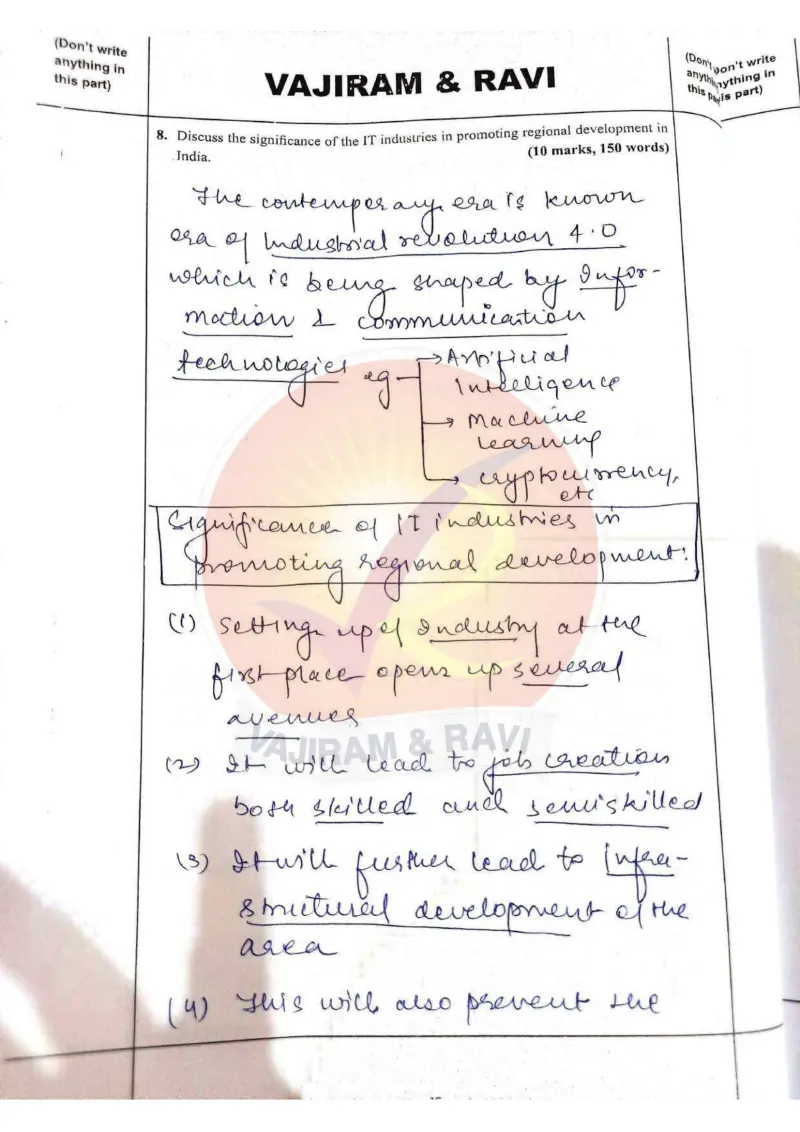 (Don't write
anything in
this part)
VAJIRAM & RAVI
(Don't write
anything in
this part)
8. Discuss the significance of the IT industries in promoting regional development in
India. (10 marks, 150 words)
The contemporary era is known
era of Industrial revolution 4.0
which is being shaped by Infor-
mation & communication
technologies eg → Artificial
Intelligence
→ Machine
learning
→ cryptocurrency,
etc
Significance of IT industries in
promoting regional development:
(1) Setting up of Industry at the
first place opens up several
avenues
VAJIRAM & RAVI
(2) It will lead to job creation
both skilled and semiskilled
(3) It will further lead to infra-
structural development of the
area
(4) This will also prevent the